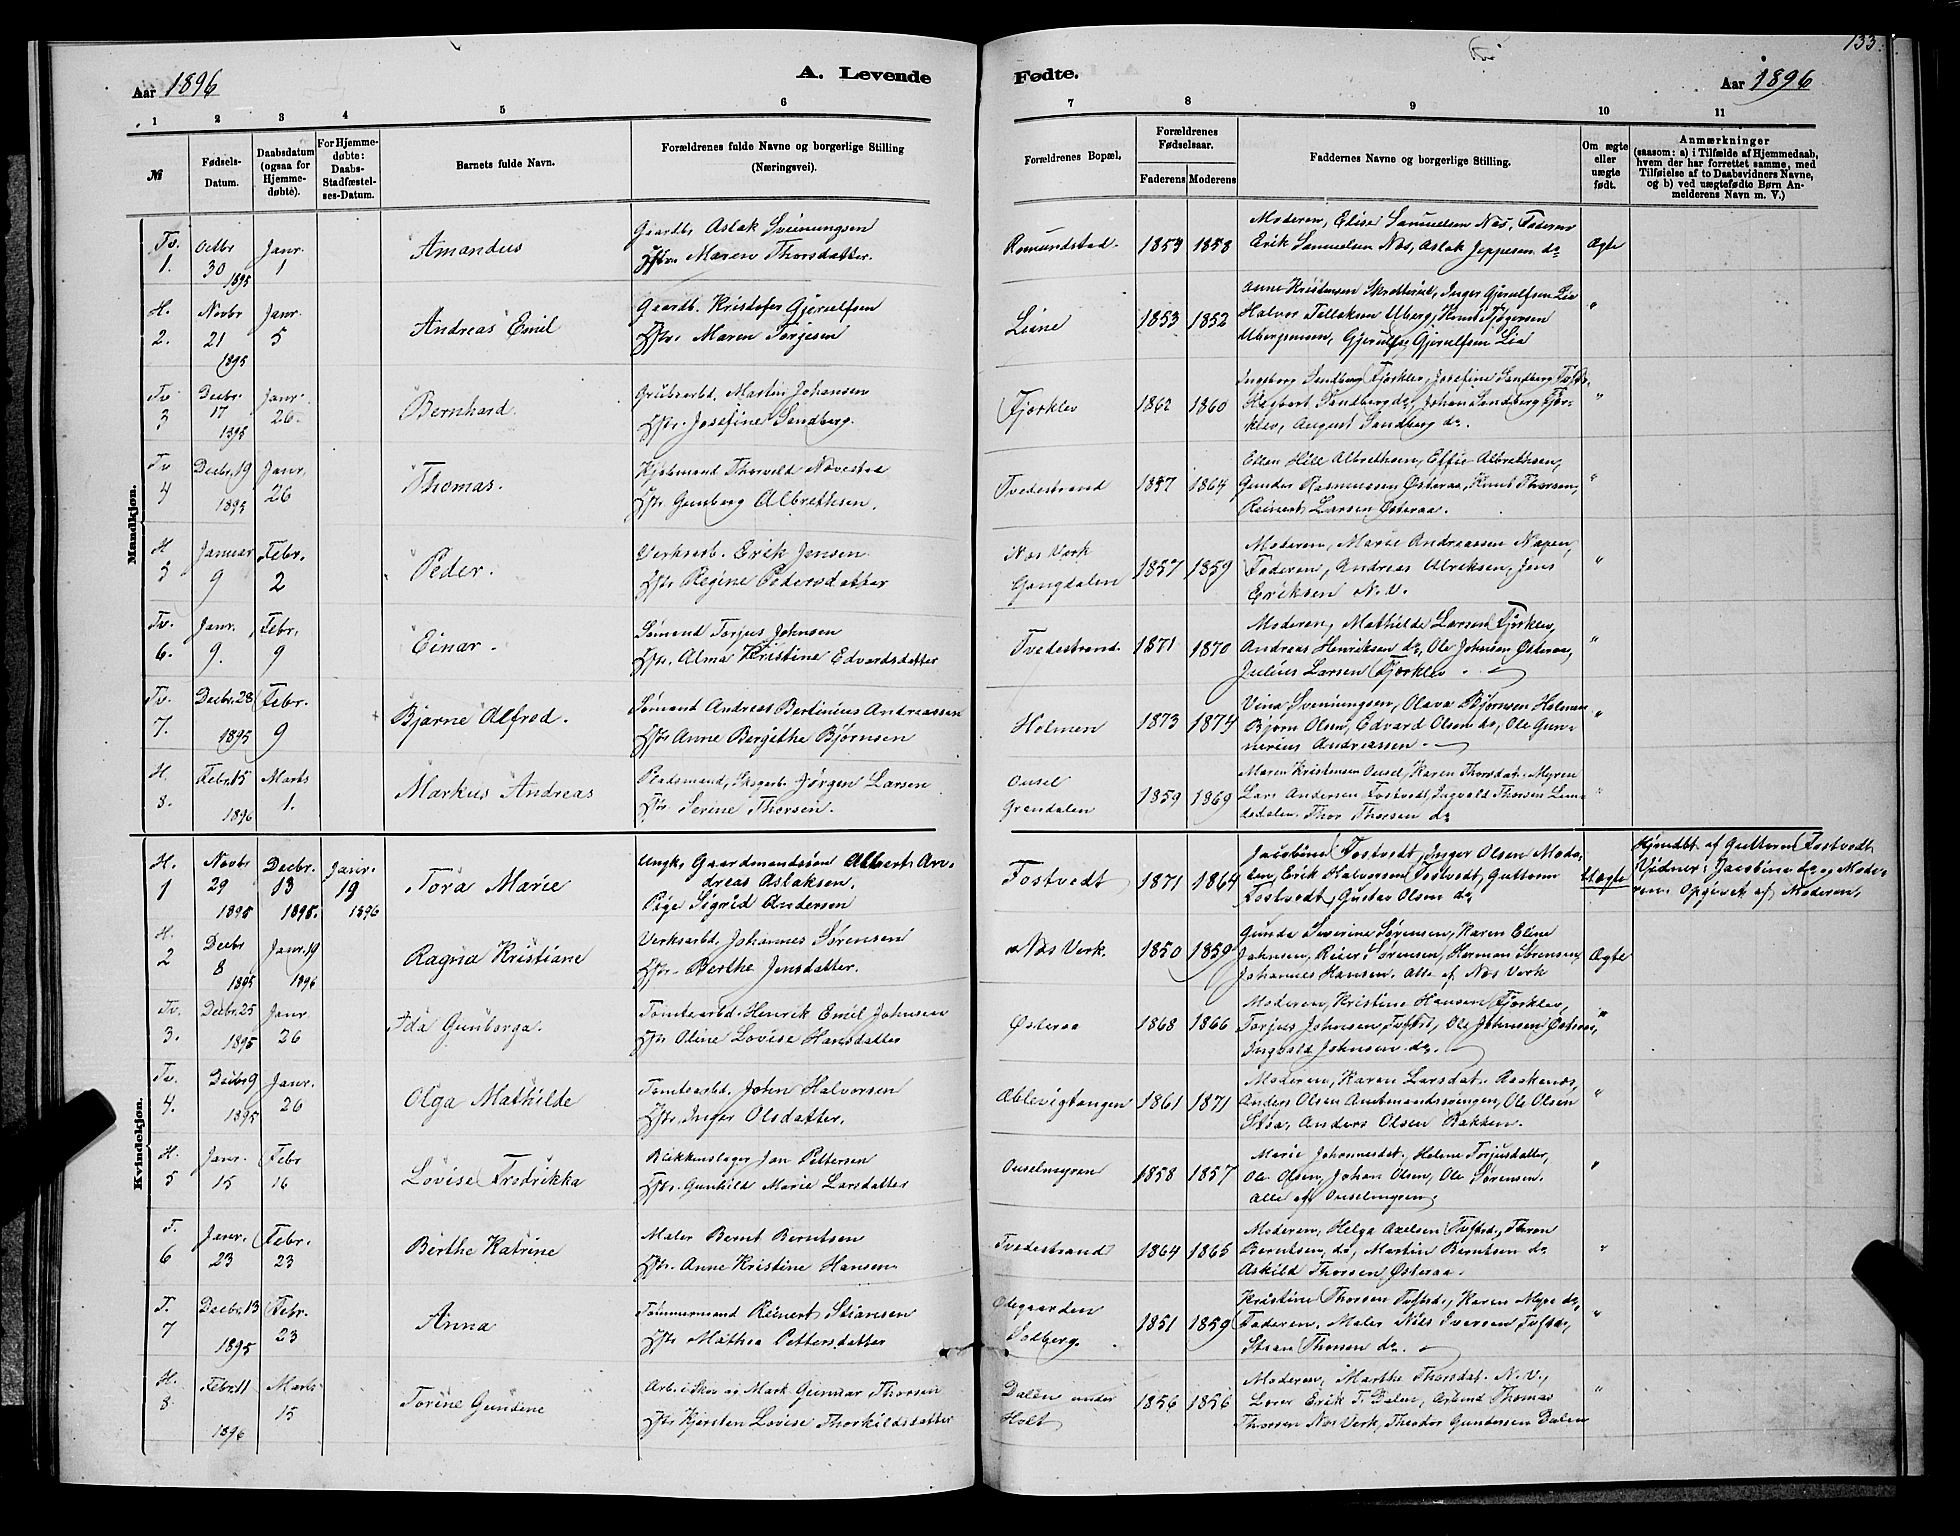 133.
Aar 1896 A. Levende Fødte. Aar 1896
1 2 3 4 5 6 7 8 9 10 11
№ Fødsels-Datum. Daabsdatum (ogsaa for Hjemmedøbte). For Hjemmedøbte: Daabs-Stadfæstelses-Datum. Barnets fulde Navn. Forældrenes fulde Navne og borgerlige Stilling (Næringsvei). Forældrenes Bopæl. Forældrenes Fødselsaar. Faderens Moderens Faddernes Navne og borgerlige Stilling. Om ægte eller uægte født. Anmærkninger (saasom: a) i Tilfælde af Hjemmedaab, hvem der har forrettet samme, med Tilføielse af to Daabsvidners Navne, og b) ved uægtefødte Børn Anmelderens Navn m. V.)
Mandkjøn.
Tv. 1. Octbr 30 1895 Janr. 1 Amandus Gaardbr Aslak Sveinungsen
Hstr. Maren Thorsdatter. Romundstad. 1854 1858 Moderen, Elise Samuelsen Næs, Faderen
Erik Samuelsen Næs, Aslak Jeppesen do Ægte
H. 2. Novbr 21 1895 Janr. 5 Andreas Emil Gaardb. Kristofer Gjerulfsen
Hstr. Maren Torjesen Liene 1853 1852 Anne Kristensen Inger Gjerulfsen Lia
Halvor Tellaksen Uberg, Knut
Gjerulf Gjerulfsen Lia "
Tv 3 Decbr. 17 1895 Janr. 26. Bernhard. Grubearbd. Martin Johansen
Hstr. Josefine Sandberg. Fjorklev 1862 1860 Ingeborg Sandberg Fjorklev, Josefine Sandberg
Sandberg do, Johan Sandberg Fjor-
klev, August Sandberg do. "
Tv 4 Decbr. 19 1895 Janr. 26 Thomas. Kjøbmand Thorvald Nævestad
Hstr. Gunborg Albrethsen. Tvedestrand 1857 1864 Ellen Albrethsen, Effie Albrethsen,
Gunder Rasmussen Østeraa, Knut Thorsen,
Reinert Larsen Østeraa. "
H 5 Januar 9 Febr. 2 Peder. Verksarb. Erik Jensen
Hstr. Regine Pedersdatter Næs Verk
Gangdalen 1857 1859 Moderen, Marie Andreassen
Faderen, Andreas Ulriksen, Jens
Eriksen N.V. "
Tv. 6. Janr. 9. Febr. 9 Einar. Sømand Torjus Johnsen
Hstr. Alma Kristine Edvardsdatter Tvedestrand. 1871 1870 Moderen, Mathilde Larsen Fjorklev,
Andreas Henriksen do, Ole Johnsen Østeraa,
Julius Larsen Fjorklev. "
Tv. 7. Decbr. 28 1895 Febr. 9 Bjarne Alfred. Sømand Andreas Bertinius Andreassen
Hstr Anne Bergithe Bjørnsen Holmen 1873 1874 Vina Sveinungsen, Olava Bjørnsen Holmen
Bjørn Olsen, Edvard Olsen do, Ole Gun-
nerius Andreassen. "
H. 8. Febr. 15 1896 Marts 1. Markus Andreas Pladsmand, Skogarb. Jørgen Larsen
Hstr. Serine Thorsen. Ousel
Grændalen 1859 1869 Maren Kristensen Ousel, Karen Thorsdat. Myren
Lars Andersen Fostvedt, Ingvald Thorsen
Thor Thorsen do "
Kvindekjøn.
H. 1 Novbr 29 1895 Decbr. 13 1895. Janr. 19 1896 Tora Marie Ungk. Gaardmandssøn Albert An-
dreas Aslaksen.
Pige Sigrid Andersen Fostvedt 1871 1864 Jacobine Fostvedt, Inger Olsen, Mode-
ren, Erik Halvorsen Fostvedt, Guttorm
Fostvedt, Gustav Olsen do. Uægte Hjemdbt. af Guttorm Fostvedt.
Vidner: Jacobine do og Mode-
ren. Opgivet af Moderen.
H. 2 Decbr 8 1895 Janr. 19 1896 Ragna Kristiane Verksarbd. Johannes Sørensen
Hstr. Berthe Jensdatter. Næs Verk. 1850 1859 Gunda Severine Sørensen, Karen Eline
Johnsen, Reier Sørensen, Herman Sørensen,
Johannes Hansen. Alle af Næs Verk Ægte
Tv. 3. Decbr. 25 1895 Janr. 26 Ida Gunborga. Tomtearbd. Henrik Emil Johnsen
Hstr. Oline Lovise Hansdatter Østeraa 1868 1866 Moderen, Kristine Hansen Fjorklev,
Torjus Johnsen, Ole Johnsen Østeraa,
Ingvald Johnsen do. "
Tv. 4. Decbr 9 1895 Janr. 26 Olga Mathilde Tomtearbd. John Halvorsen
Hstr. Inger Olsdatter. Ablevigtangen 1861 1871 Moderen, Karen Larsdat. Aaskenæs,
Anders Olsen Ambmandssvingen, Ole Olsen
Støa, Anders Olsen Bakken. "
H. 5 Janr. 15 Febr 16 Lovise Fredrikka Blikkenslager Jon Pettersen
Hstr. Gunhild Marie Larsdatter Ouselmyren 1858 1857 Marie Johannesdat. Helene Torjusdatter,
Ole Olsen, Johan Olsen, Ole Sørensen.
Alle af Ouselmyren. "
T. 6 Janr. 23 Febr. 23 Berthe Katrine Maler Bernt Berntsen
Hstr. Anne Kristine Hansen Tvedestrand 1864 1865 Moderen, Helga Axelsen
Berntsen, do, Martin Berntsen do
Askild Thorsen Østeraa. "
T. 7 Decbr. 13 1895 Febr. 23 Anna Tømmermand Reinert Stiansen
Hstr Mathea Pettersdatter Ødegaarden
Sodberg. 1851 1859 Kristine Thorsen Karen Myre do,
Faderen, Maler Nils Iversen
Stian Thorsen do. "
H. 8 Febr. 11 1896 Marts 15 Torine Gundine Arb. i Skov og Mark Gunnar Thorsen
Hstr Kjersten Lovise Thorkildsdatter Dalen under
Holt 1856 1856 Moderen, Marthe Thorsdat. N.V.,
Lærer Erik T. Dalen, Arbmd Thomas
Thorsen Næs Verk, Theodor Gundersen Dalen "